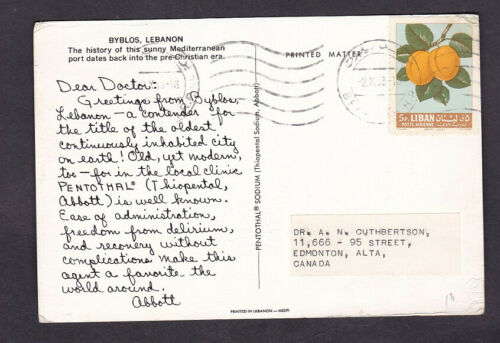 BYBLOS, LEBANON
The history of this sunny Mediterranean
port dates back into the pre-Christian era.
PRINTED MATTER
5P. LIBAN لبنان ٥ق
POSTE AERIENNE
Dear Doctor:
Greetings from Byblos,
Lebanon — a contender for
the title of the oldest
continuously inhabited city
on earth! Old, yet modern,
too — for in the local clinic
PENTOTHAL® (Thiopental,
Abbott) is well known.
Ease of administration,
freedom from delirium,
and recovery without
complications make this
agent a favorite the
world around.
Abbott
PENTOTHAL® SODIUM (Thiopental Sodium, Abbott)
DR. A. N. CUTHBERTSON,
11,666 - 95 STREET,
EDMONTON, ALTA,
CANADA
PRINTED IN LEBANON — MEEPI